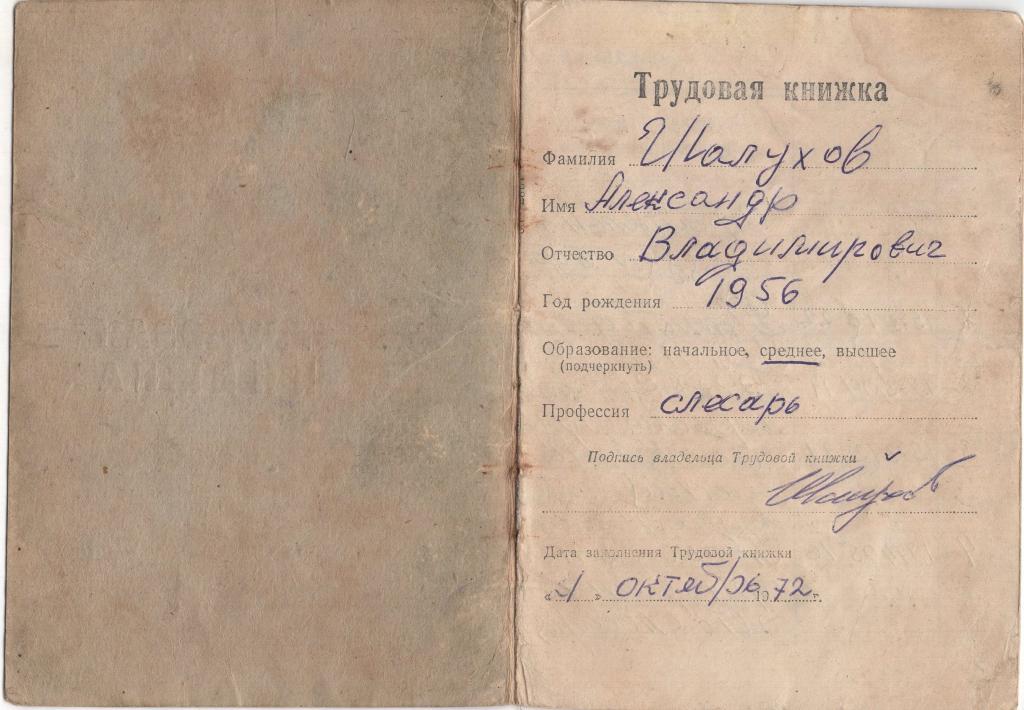 Трудовая книжка
Фамилия Шалухов
Имя Александр
Отчество Владимирович
Год рождения 1956
Образование: начальное, среднее, высшее
(подчеркнуть)
Профессия слесарь
Подпись владельца Трудовой книжки
Дата заполнения Трудовой книжки
" " октябрь 1972 г.